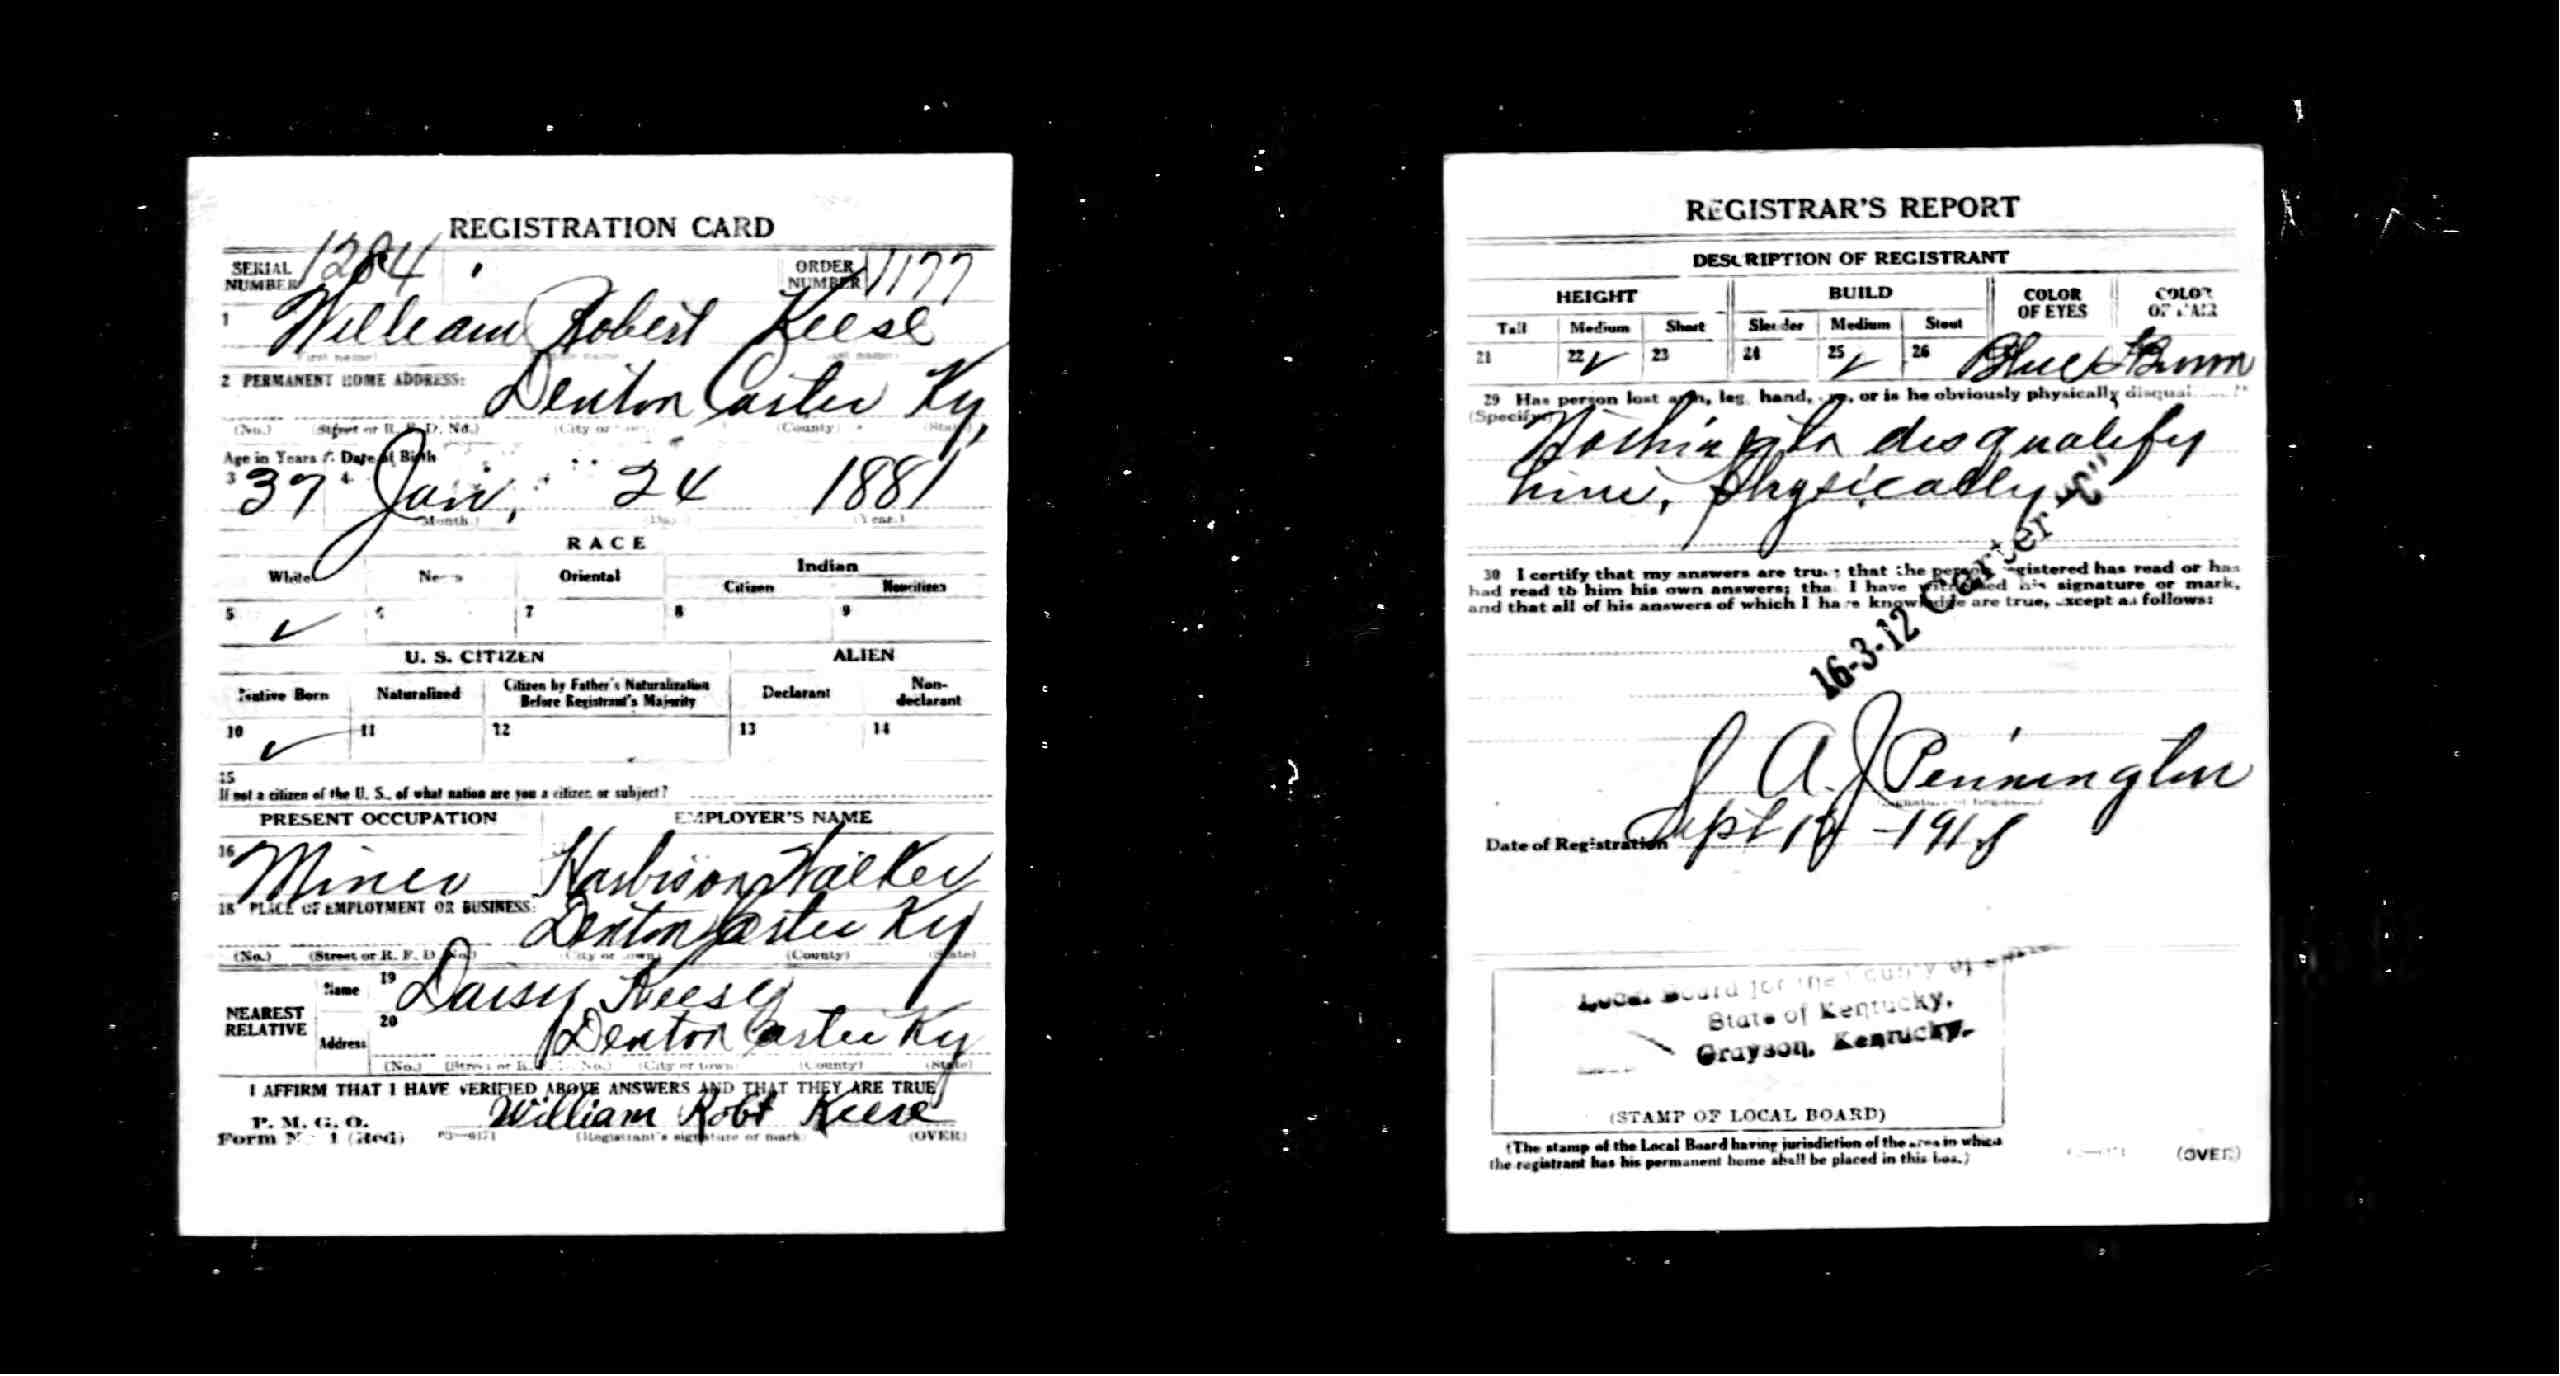 REGISTRATION CARD
SERIAL NUMBER 1284 ORDER NUMBER 1177
1 William Robert Keese
2 PERMANENT HOME ADDRESS: Denton Carter Ky,
(No.) (Street or R. F. D. No.) (City or town) (County) (State)
Age in Years Date of Birth
3 37 4 Jan, 24 1881
(Month.) (Day.) (Year.)
RACE
White Negro Oriental Indian
Citizen Noncitizen
5 ✓ 6 7 8 9
U. S. CITIZEN ALIEN
Native Born Naturalized Citizen by Father's Naturalization Before Registrant's Majority Declarant Non-declarant
10 ✓ 11 12 13 14
15
If not a citizen of the U. S., of what nation are you a citizen or subject?
PRESENT OCCUPATION EMPLOYER'S NAME
16 Miner Harbison Walker
18 PLACE OF EMPLOYMENT OR BUSINESS: Denton Carter Ky
(No.) (Street or R. F. D. No.) (City or town) (County) (State)
NEAREST RELATIVE Name 19 Daisy Keesey
Address 20 Denton Carter Ky
(No.) (Street or R. F. D. No.) (City or town) (County) (State)
I AFFIRM THAT I HAVE VERIFIED ABOVE ANSWERS AND THAT THEY ARE TRUE
P. M. G. O.
Form No. 1 (Red) 03—6171 William Robt Keese
(Registrant's signature or mark) (OVER)
REGISTRAR'S REPORT
DESCRIPTION OF REGISTRANT
HEIGHT BUILD COLOR OF EYES COLOR OF HAIR
Tall Medium Short Slender Medium Stout
21 22 ✓ 23 24 25 ✓ 26 Blue Brown
29 Has person lost arm, leg, hand, eye, or is he obviously physically disqualified?
(Specify)
Nothing to disqualify
him, physically
16-3-12 Carter "C"
30 I certify that my answers are true; that the person registered has read or has
had read to him his own answers; that I have witnessed his signature or mark,
and that all of his answers of which I have knowledge are true, except as follows:
A. J. Pennington
(Signature of Registrar)
Date of Registration Sept 12 - 1918
Local Board for the County of
State of Kentucky,
Grayson, Kentucky.
(STAMP OF LOCAL BOARD)
(The stamp of the Local Board having jurisdiction of the area in which
the registrant has his permanent home shall be placed in this box.)
(OVER)